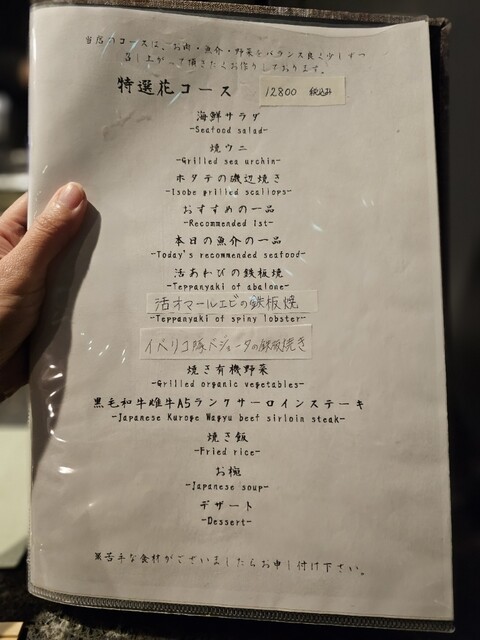 当店のコースは、お肉・魚介・野菜をバランス良く少しずつ
召し上がって頂きたくお作りしております。
特選花コース 12800 税込み
海鮮サラダ
-Seafood salad-
焼ウニ
-Grilled sea urchin-
ホタテの磯辺焼き
-Isobe grilled scallops-
おすすめの一品
-Recommended 1st-
本日の魚介の一品
-Today's recommended seafood-
活あわびの鉄板焼
-Teppanyaki of abalone-
活オマールエビの鉄板焼
-Teppanyaki of spiny lobster-
イベリコ豚ベジョータの鉄板焼き
焼き有機野菜
-Grilled organic vegetables-
黒毛和牛雌牛A5ランクサーロインステーキ
-Japanese Kuroge Wagyu beef sirloin steak-
焼き飯
-Fried rice-
お椀
-Japanese soup-
デザート
-Dessert-
※苦手な食材がございましたらお申し付け下さい。